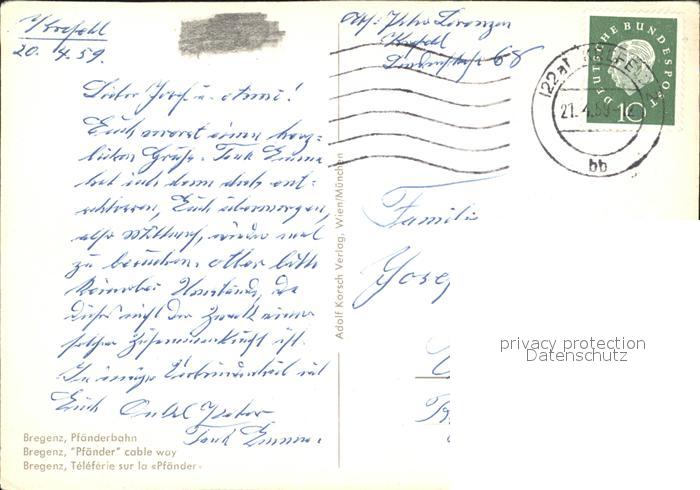 Krefeld
20. 4. 59.
Lieber Josef u. Anni!
Euch vorerst einen herz=
lichen Gruß. Tante Emma
hat sich dann doch ent=
schlossen, Euch übermorgen,
also Mittwoch, wieder mal
zu besuchen. Aber bitte
keinerlei Umstände, da
dieses nicht der Zweck einer
solchen Zusammenkunft ist.
In
Euch Onkel Peter
Tante Emma.
Abs. Peter Lorenzen
Krefeld
68
Familie
Josef
DEUTSCHE BUNDESPOST
10
(22a)
21.4.59
bb
Adolf Korsch Verlag, Wien/München
privacy protection
Datenschutz
Bregenz, Pfänderbahn
Bregenz, "Pfänder" cable way
Bregenz, Téléférie sur la «Pfänder»